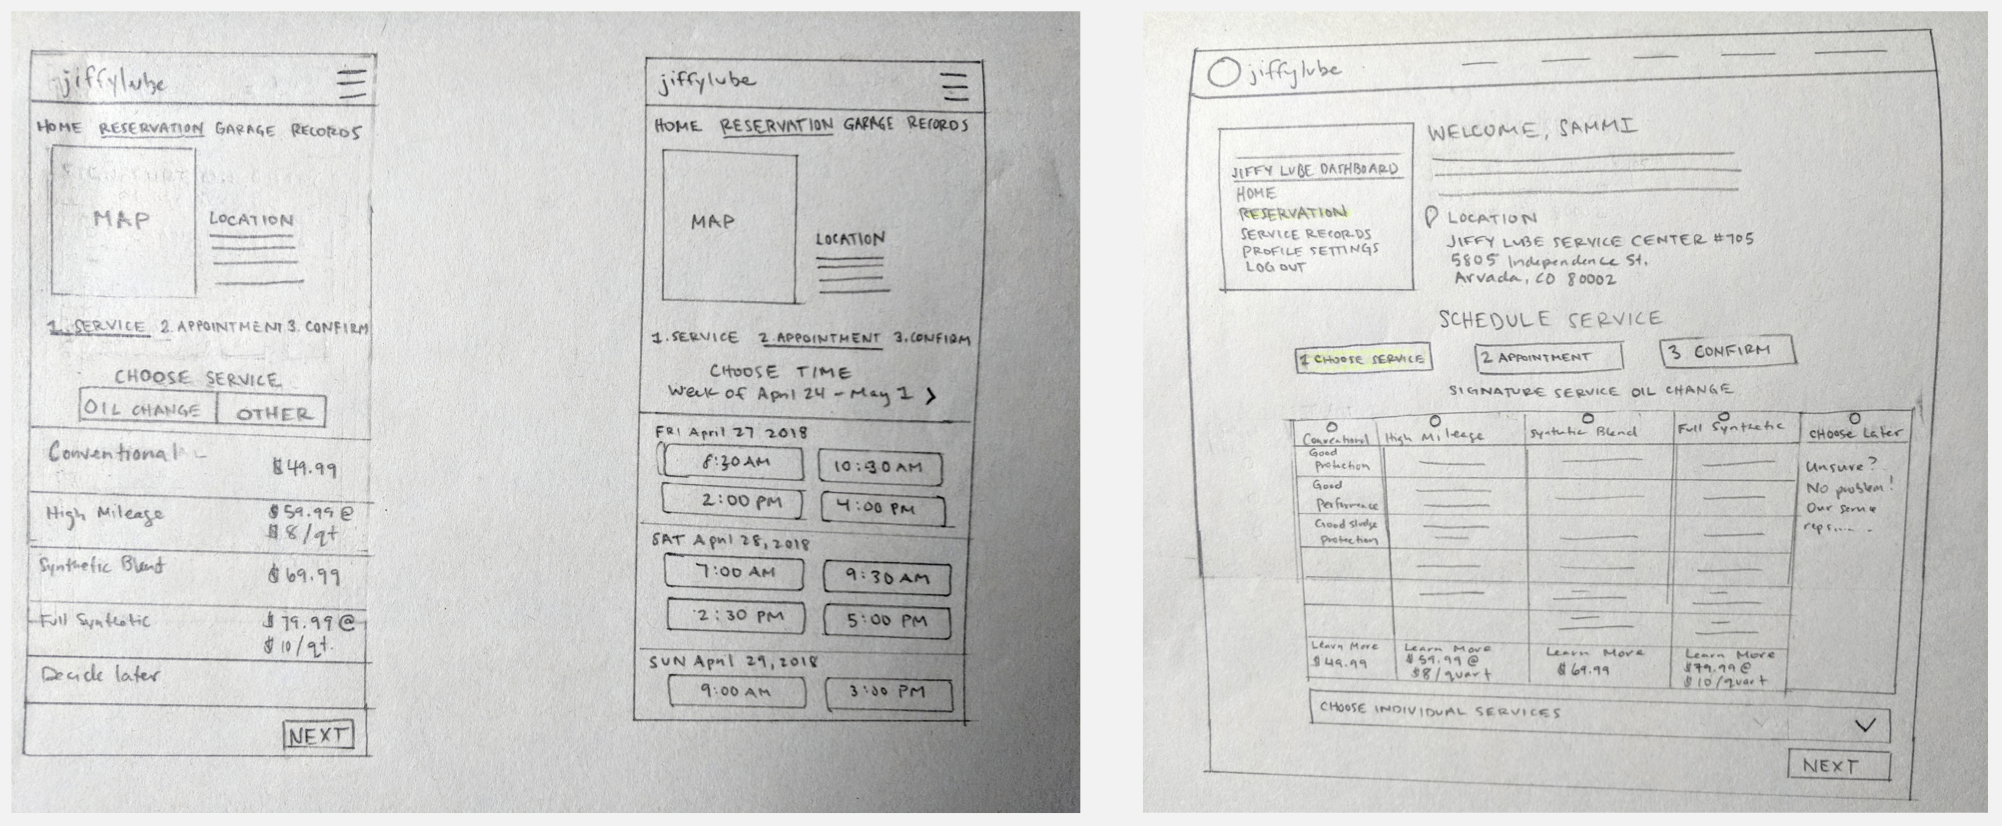 jiffylube
HOME RESERVATION GARAGE RECORDS
MAP
LOCATION
1. SERVICE 2. APPOINTMENT 3. CONFIRM
CHOOSE SERVICE
OIL CHANGE OTHER
Conventional
$49.99
High Mileage $59.99 @
$8/qt
Synthetic Blend $69.99
Full Synthetic $79.99 @
$10/qt.
Decide later
NEXT
jiffylube
HOME RESERVATION GARAGE RECORDS
MAP
LOCATION
1. SERVICE 2. APPOINTMENT 3. CONFIRM
CHOOSE TIME
Week of April 24 - May 1 >
FRI April 27 2018
8:30 AM 10:30 AM
2:00 PM 4:00 PM
SAT April 28, 2018
7:00 AM 9:30 AM
2:30 PM 5:00 PM
SUN April 29, 2018
9:00 AM 3:00 PM
jiffylube
JIFFY LUBE DASHBOARD
HOME
RESERVATION
SERVICE RECORDS
PROFILE SETTINGS
LOG OUT
WELCOME, SAMMI
LOCATION
JIFFY LUBE SERVICE CENTER #705
5805 Independence St.
Arvada, CO 80002
SCHEDULE SERVICE
1 CHOOSE SERVICE 2 APPOINTMENT 3 CONFIRM
SIGNATURE SERVICE OIL CHANGE
Conventional High Mileage Synthetic Blend Full Synthetic CHOOSE Later
Good
Protection
Good
Performance
Good sludge
protection
Unsure?
No problem!
Our
reps.....
Learn More Learn More Learn More Learn More
$49.99 $59.99 @ $69.99 $79.99 @
$8/quart $10/quart
CHOOSE INDIVIDUAL SERVICES
NEXT